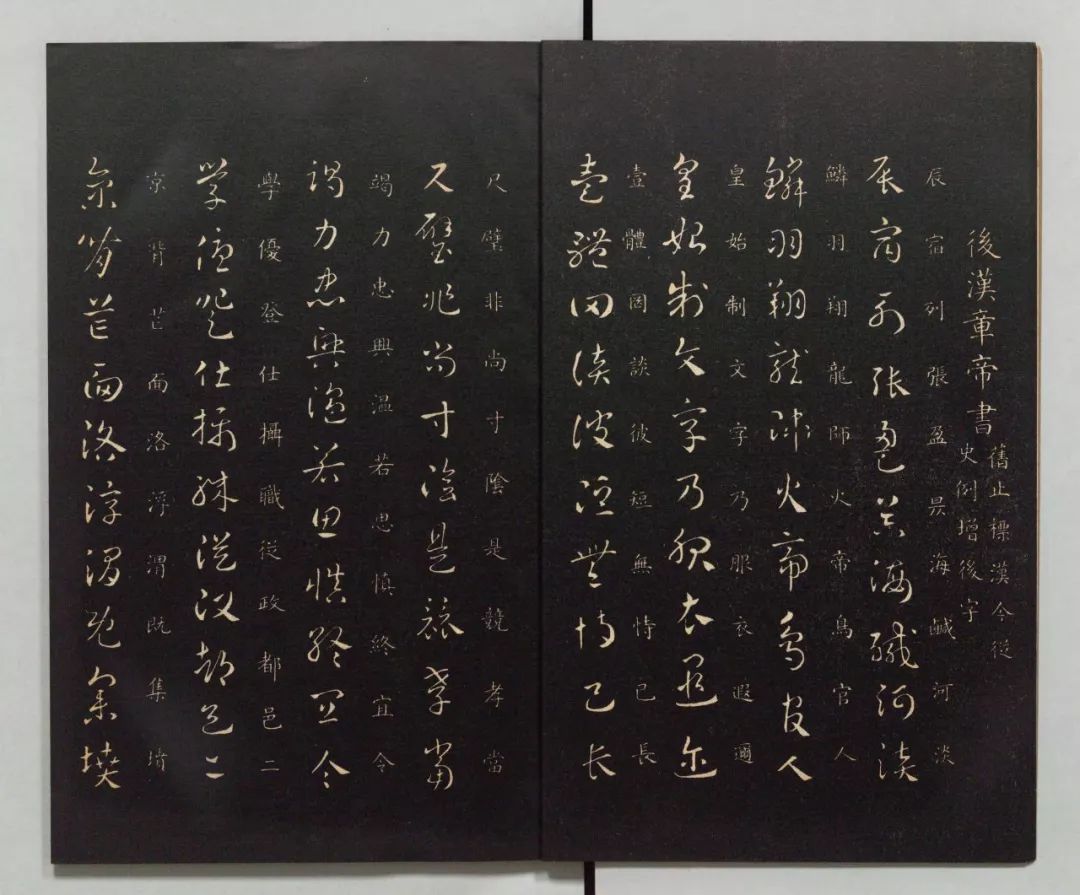 後漢章帝書
舊止標漢今從
史例增後字
辰宿列張盈昃海鹹河淡
辰宿列張盈昃海鹹河淡
鱗羽翔龍師火帝鳥官人
鱗羽翔龍師火帝鳥官人
皇始制文字乃服衣遐邇
皇始制文字乃服衣遐邇
壹體罔談彼短無恃己長
壹體罔談彼短無恃己長
尺璧非尚寸陰是競孝當
尺璧非尚寸陰是競孝當
竭力忠興溫若思慎終宜令
竭力忠興溫若思慎終宜令
學優登仕攝職從政都邑二
學優登仕攝職從政都邑二
京背芒面洛浮渭既集墳
京背芒面洛浮渭既集墳